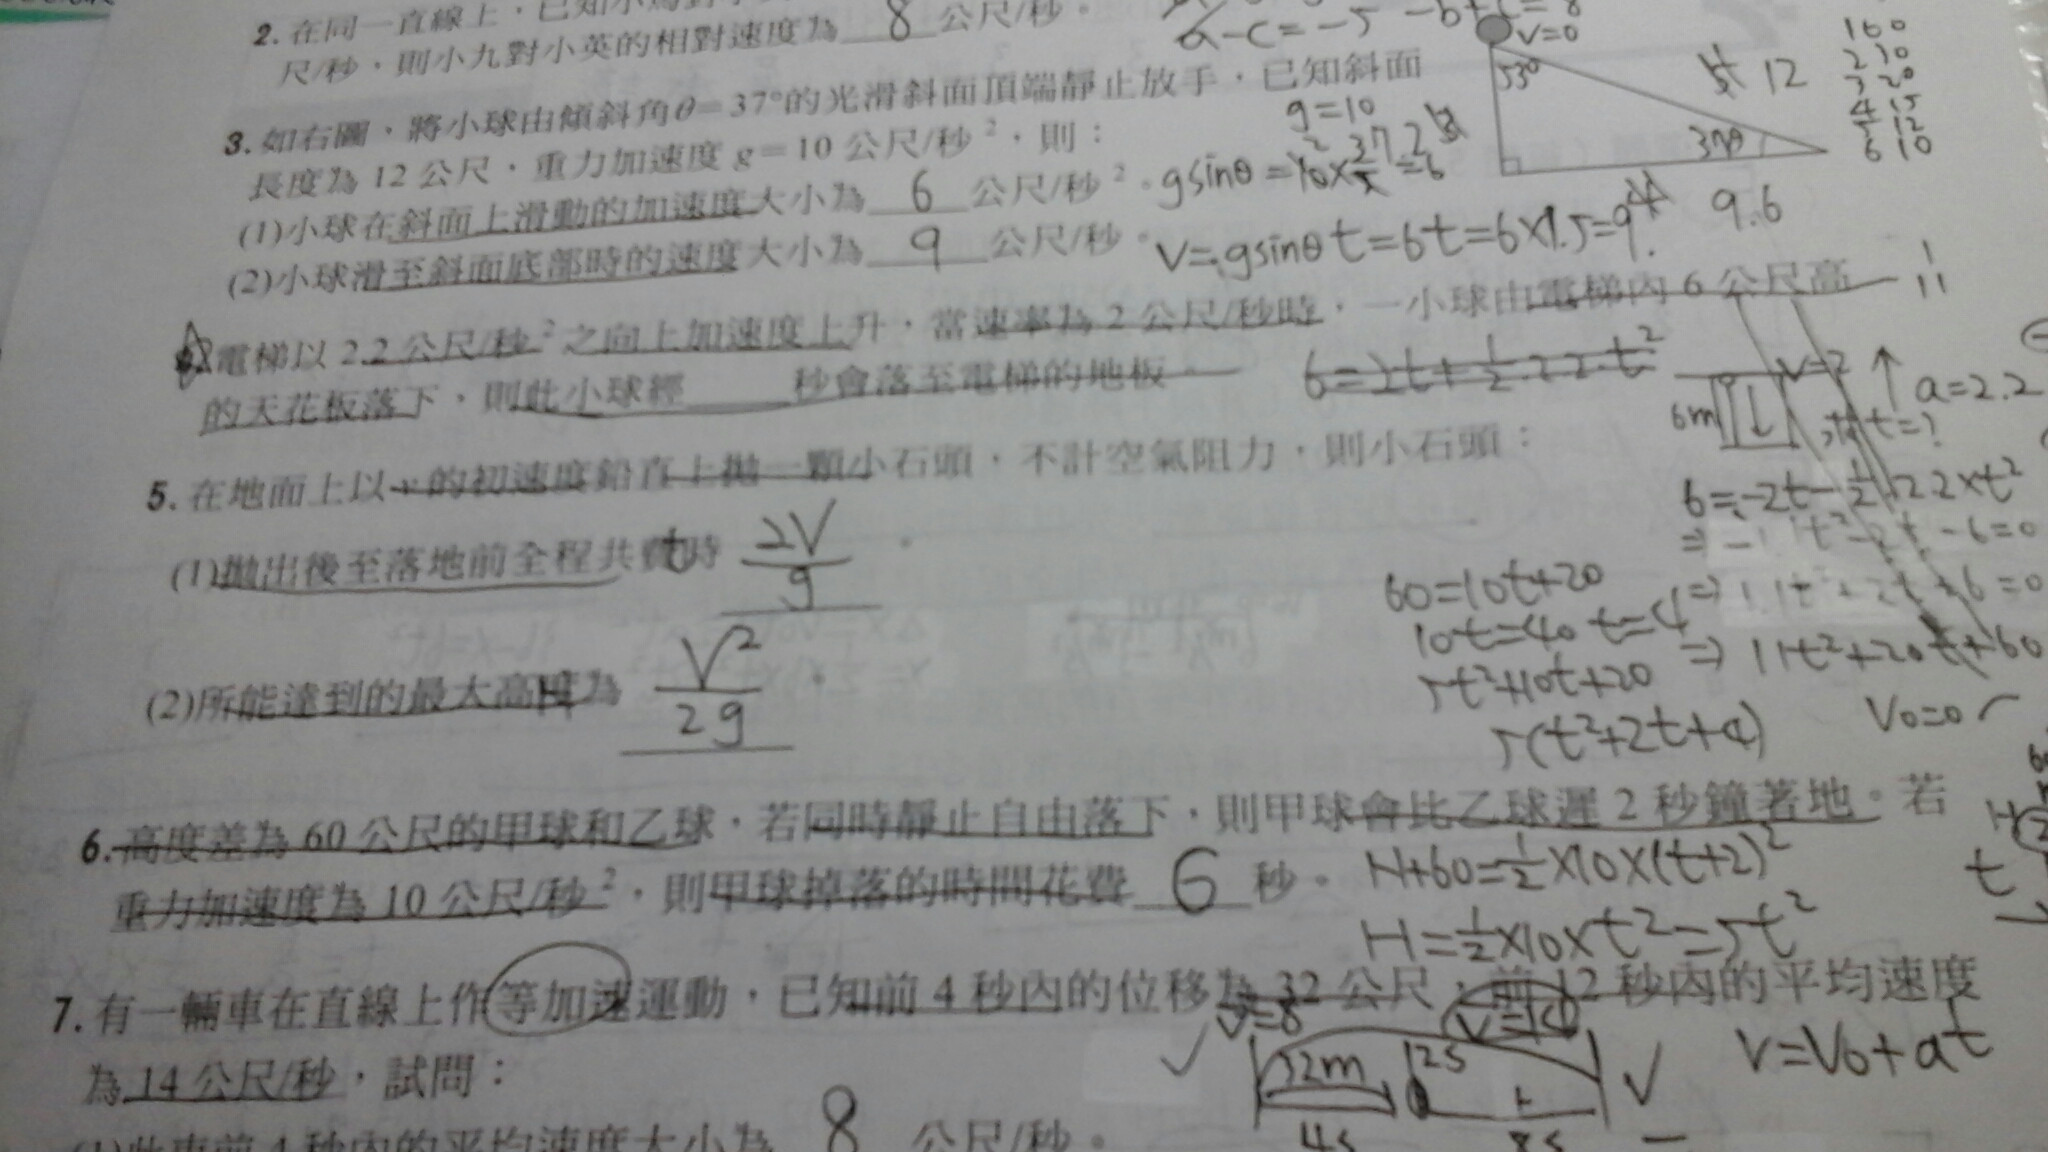 2. 在同一直線上，已知小
尺/秒，則小九對小英的相對速度為 8 公尺/秒。
a-c=-5
v=0
3. 如右圖，將小球由傾斜角θ=37°的光滑斜面頂端靜止放手，已知斜面
長度為 12 公尺，重力加速度 g=10 公尺/秒²，則：
(1)小球在斜面上滑動的加速度大小為 6 公尺/秒²。
(2)小球滑至斜面底部時的速度大小為 9 公尺/秒。
g=10
gsinθ=10×3/5=6
V=gsinθt=6t=6×1.5=9
53°
12
37θ
9.6
1 60
2 30
3 20
4 15
5 12
6 10
電梯以 2.2 公尺/秒²之向上加速度上升，當速率為 2 公尺/秒時，一小球由電梯內 6 公尺高
的天花板落下，則此小球經 秒會落至電梯的地板。
6=2t+1/2·2.2·t²
V=2
a=2.2
6m
t=?
6=-2t-1/2×2.2×t²
⇒-1.1t²-2t-6=0
⇒1.1t²+2t+6=0
⇒11t²+20t+60
V0=0
5. 在地面上以 v 的初速度鉛直上拋一顆小石頭，不計空氣阻力，則小石頭：
(1)拋出後至落地前全程共費時 2V/g 。
(2)所能達到的最大高度為 V²/2g 。
t
H
60=10t+20
10t=40 t=4
5t²+10t+20
5(t²+2t+4)
6. 高度差為 60 公尺的甲球和乙球，若同時靜止自由落下，則甲球會比乙球遲 2 秒鐘著地。若
重力加速度為 10 公尺/秒²，則甲球掉落的時間花費 6 秒。
H+60=1/2×10×(t+2)²
H=1/2×10×t²=5t²
t
7. 有一輛車在直線上作等加速運動，已知前 4 秒內的位移為 32 公尺，前 12 秒內的平均速度
為 14 公尺/秒，試問：
v=8
v=14
32m
12s
4s
8s
V=V0+at
(1)此車前 4 秒內的平均速度大小為 8 公尺/秒。